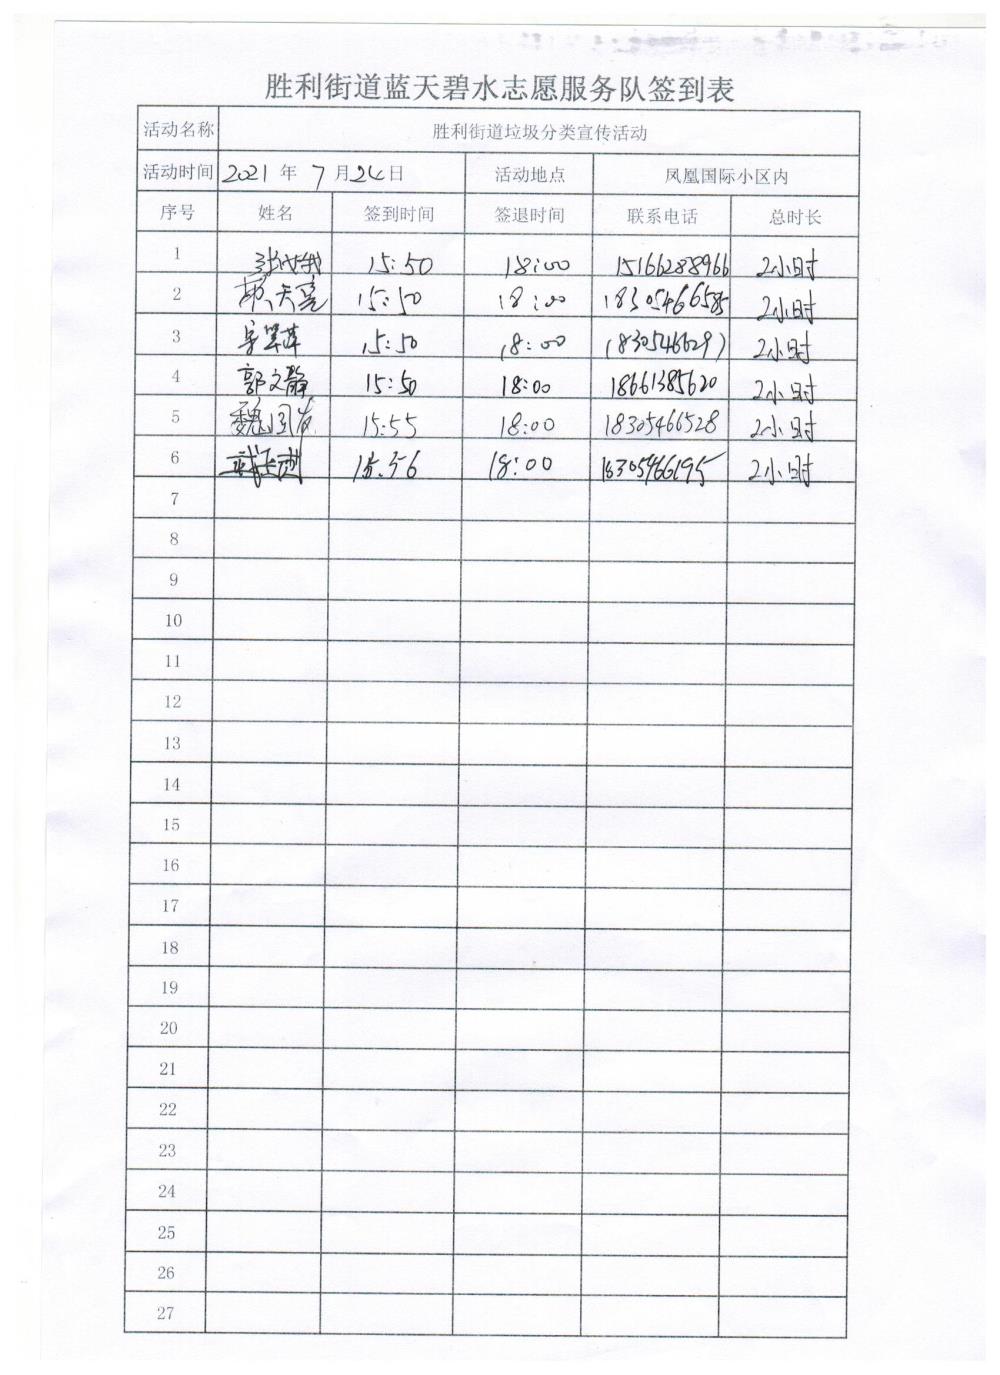 胜利街道蓝天碧水志愿服务队签到表
活动名称 胜利街道垃圾分类宣传活动
活动时间 2021 年 7 月 24 日 活动地点 凤凰国际小区内
序号 姓名 签到时间 签退时间 联系电话 总时长
1 15:50 18:00 15166288966 2小时
2 15:50 18:00 18305466585 2小时
3 15:50 18:00 2小时
4 郭文静 15:50 18:00 18661385620 2小时
5 15:55 18:00 18305466528 2小时
6 15:56 18:00 18305466195 2小时
7
8
9
10
11
12
13
14
15
16
17
18
19
20
21
22
23
24
25
26
27